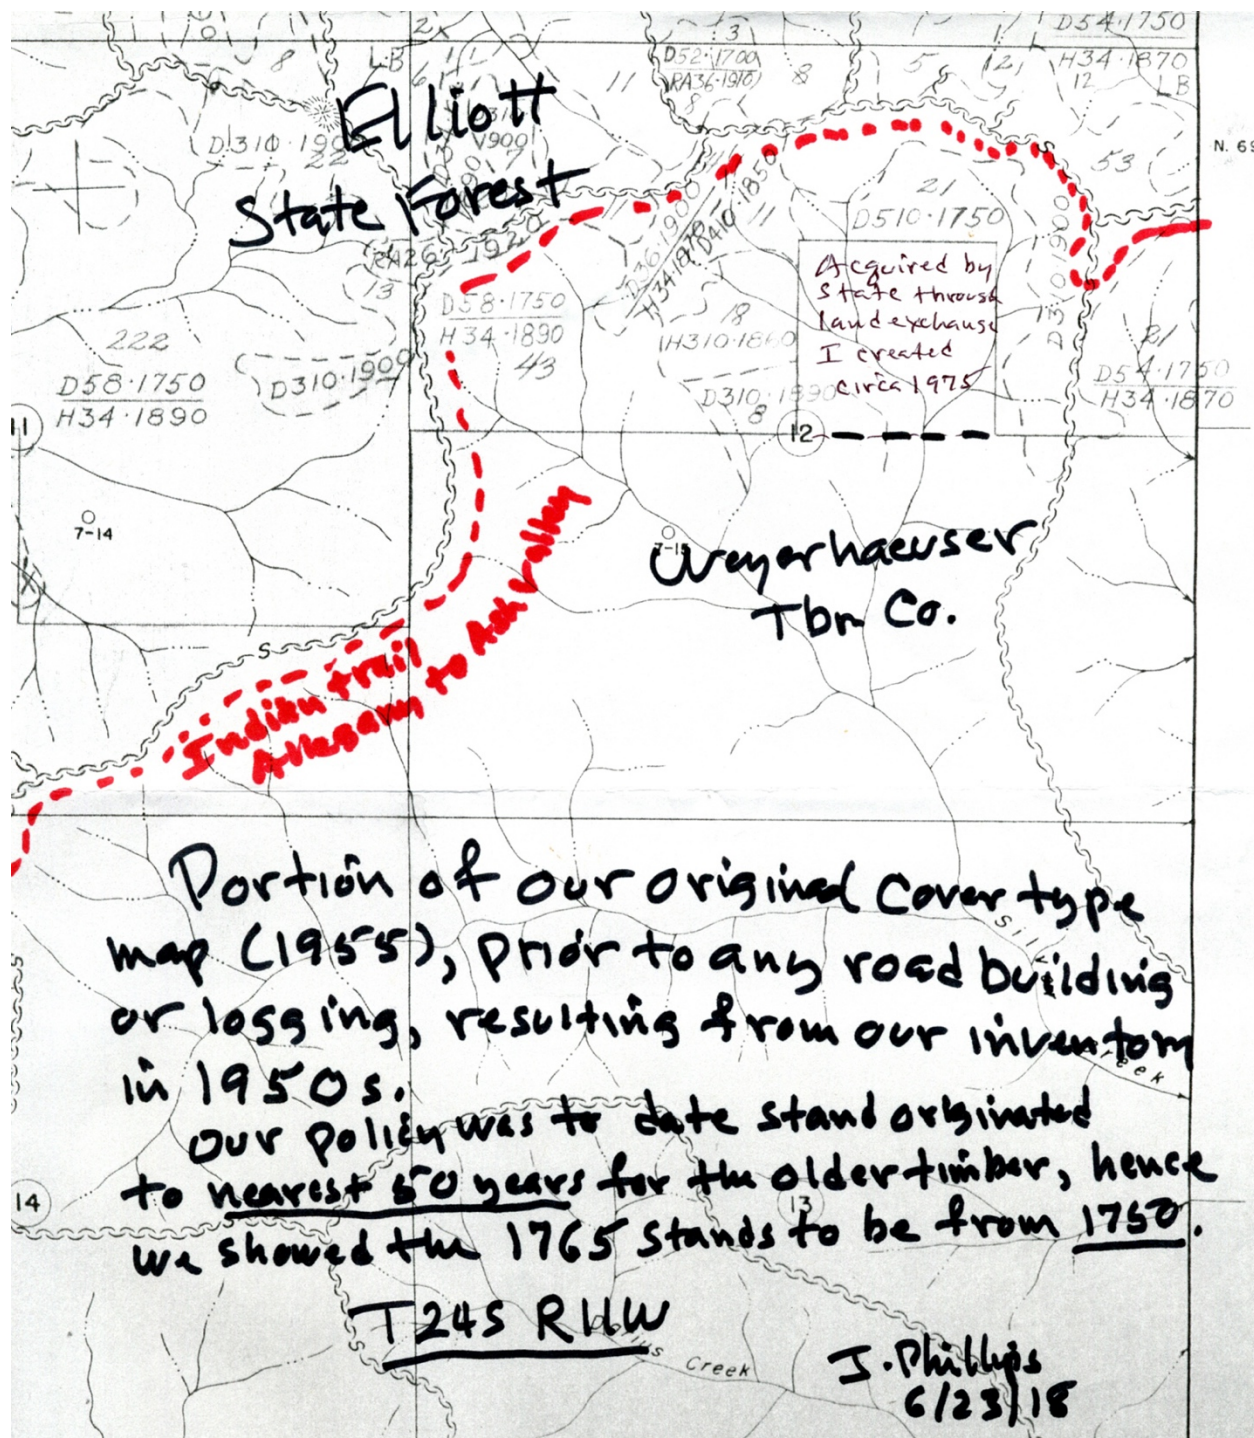 2
1
3
D54·1750
H34·1870
12
LB
8
LB
6
11
D52·1700
RA36·1910
8
8
5
12
N. 69
Elliott
State Forest
D310·1900
22
V900
7
53
21
D510·1750
RA26
1920
13
D36·1900
H34·1870
D410·1850
11
D310·1900
Acquired by
State through
land exchange
I created
circa 1975
D58·1750
H34·1890
43
18
H310·1860
D310·1890
8
222
D58·1750
H34·1890
D310·1900
81
D54·1750
H34·1870
11
12
7-14
7-15
Weyerhaeuser
Tbr Co.
S
S
Indian trail
Allegany to Ash valley
Portion of our original Cover type
map (1955), prior to any road building
or logging, resulting from our inventory
in 1950s.
Creek
Our policy was to date stand originated
to nearest 50 years for the older timber, hence
14
13
we showed the 1765 stands to be from 1750.
T24S R11W
Creek
J. Phillips
6/23/18